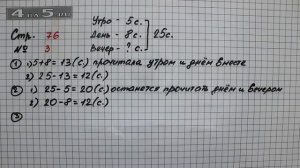 4 на 5.ru
Стр. 76
№ 3
Утро - 5 с.
День - 8 с.
Вечер - ? с.
25 с.
① 1) 5+8=13 (с.) прочитала утром и днём вместе
2) 25-13=12 (с.)
② 1) 25-5=20 (с.) останется прочитать днём и вечером
2) 20-8=12 (с.)
③